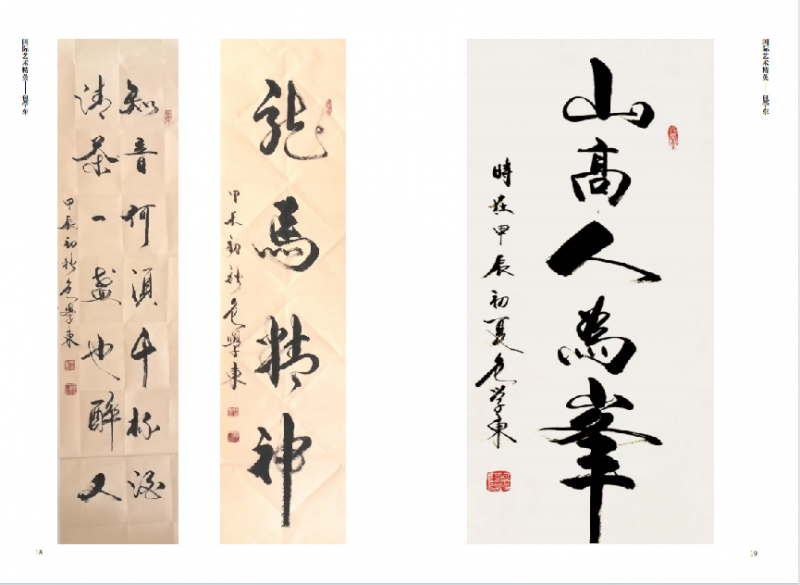 国际艺术精英——包学东
知音何須千杯酒
清茶一盞也醉人
甲辰初秋包學東
龍馬精神
甲辰初秋包學東
18
山高人為峯
時在甲辰初夏包學東
国际艺术精英——包学东
19